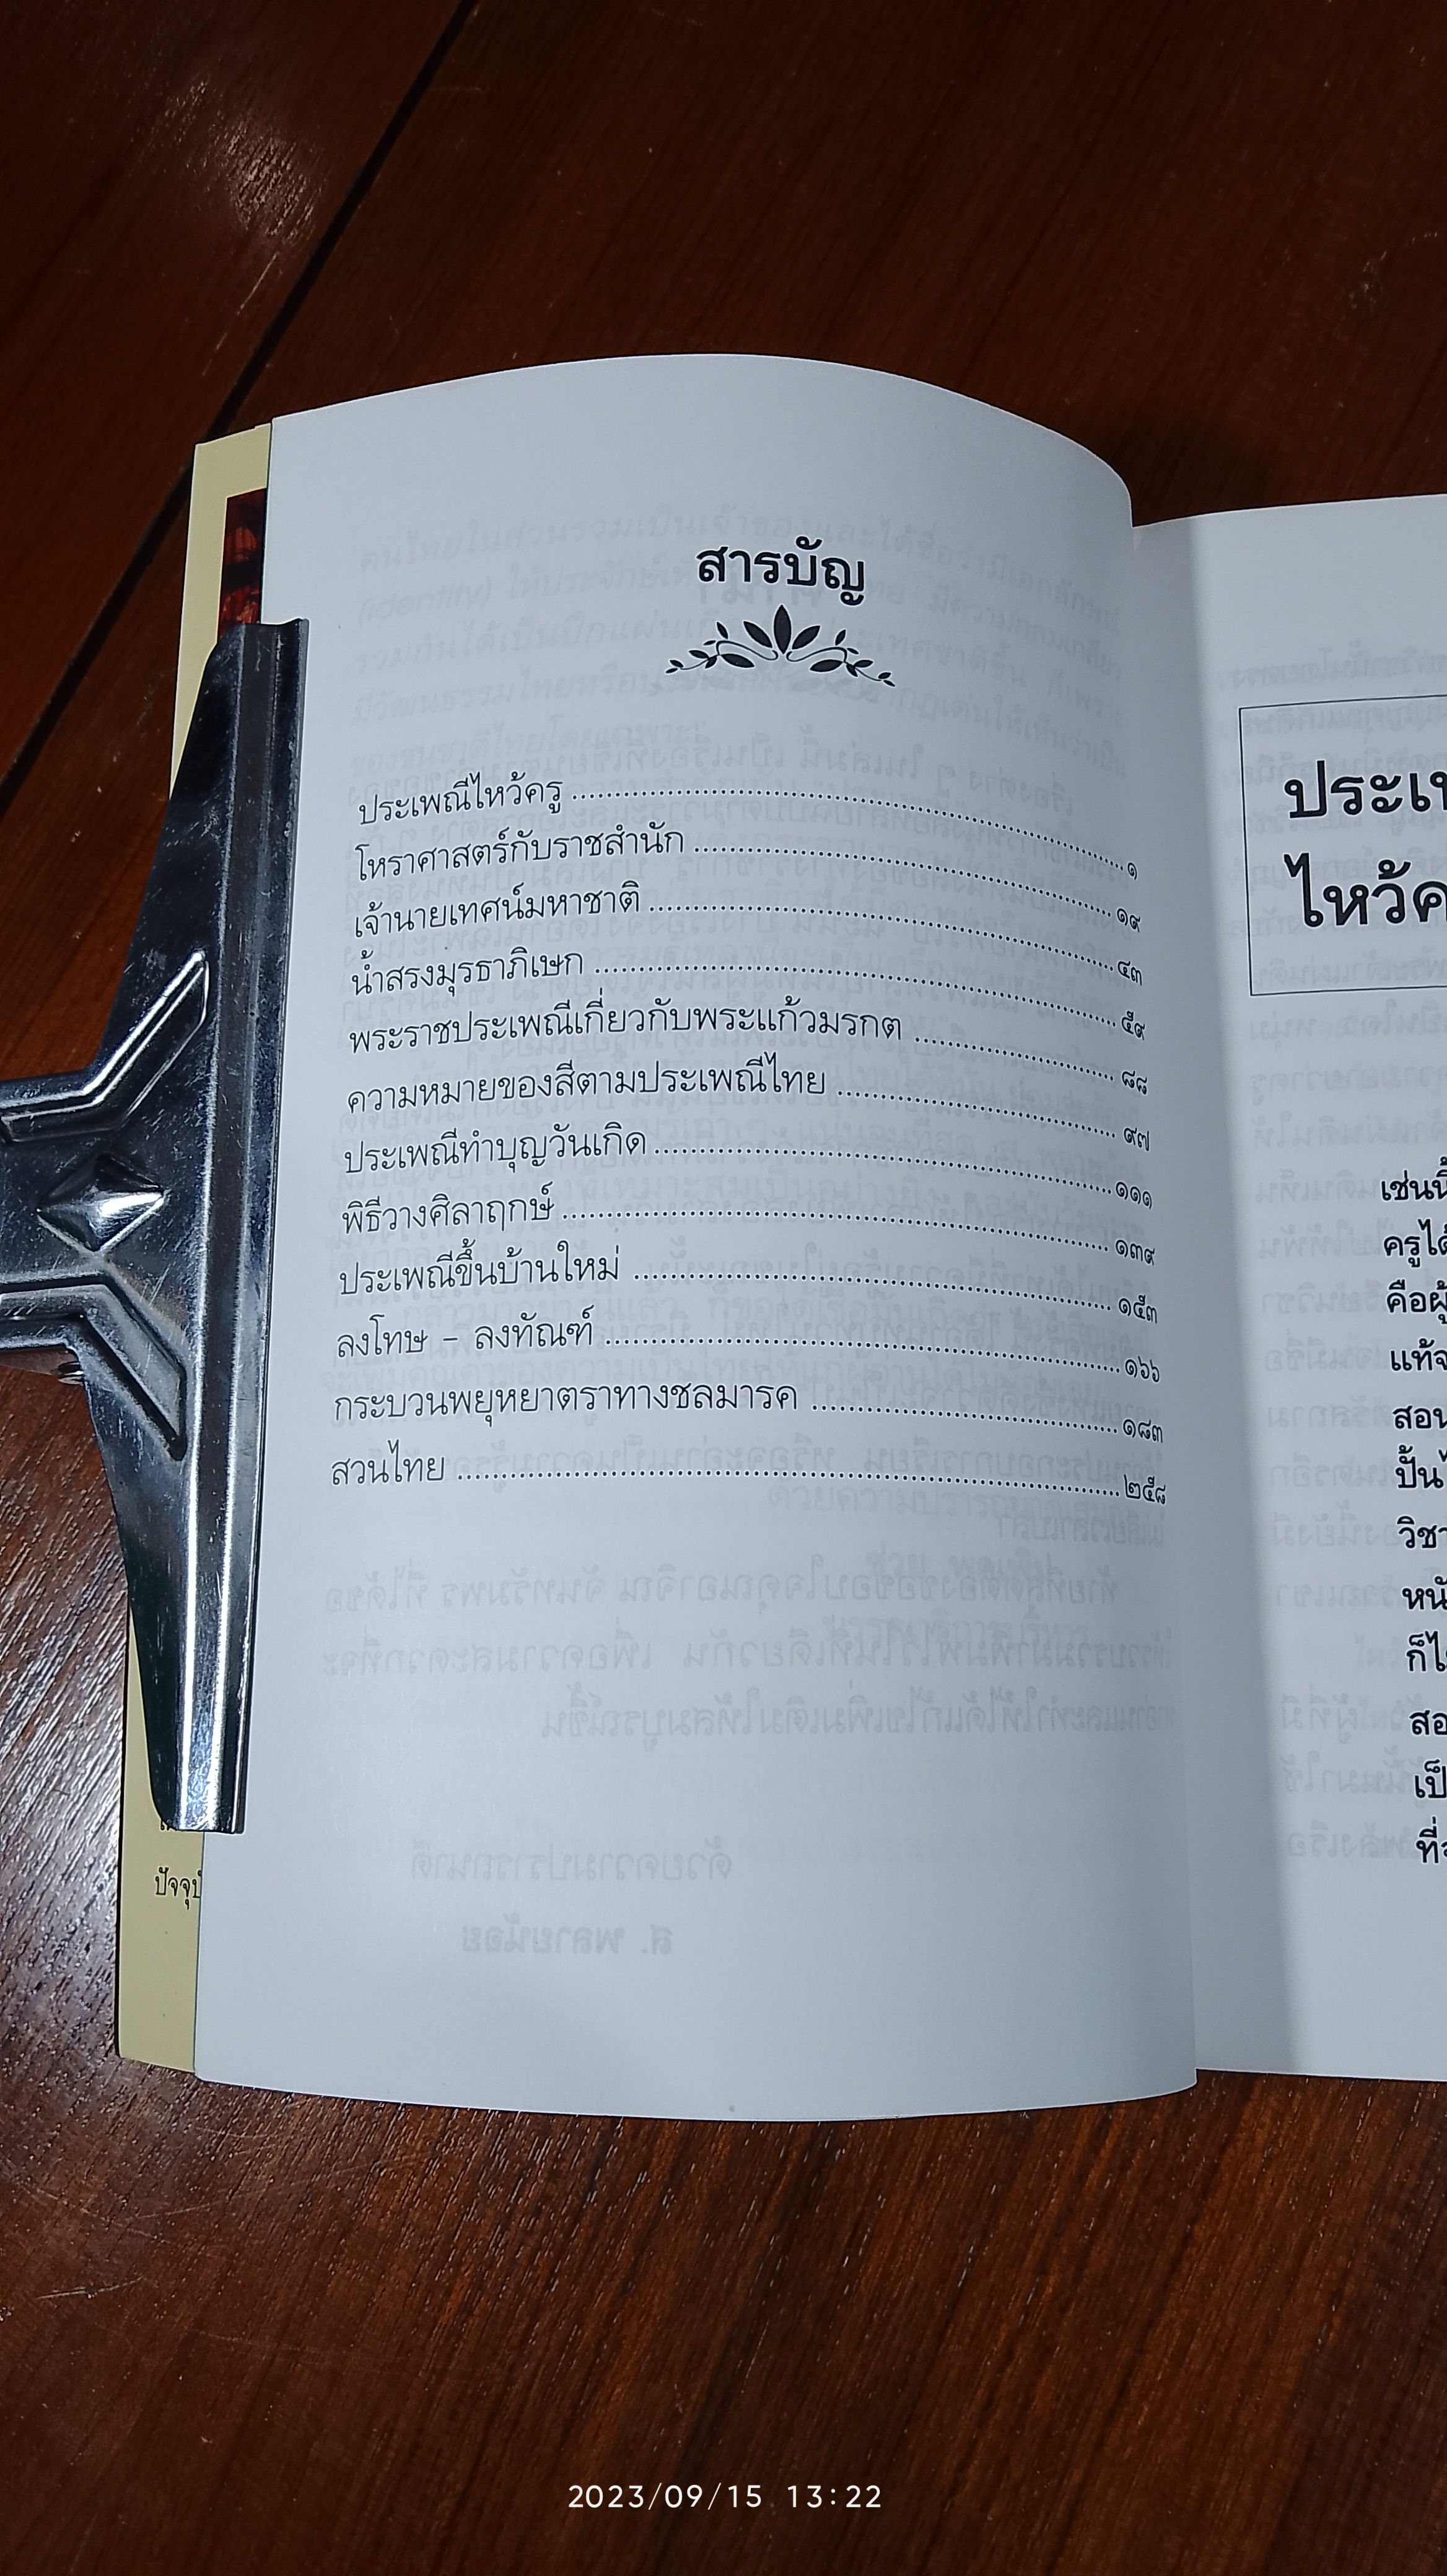 สารบัญ
ประเพณีไหว้ครู ........ ๑
โหราศาสตร์กับราชสำนัก ........ ๑๙
เจ้านายเทศน์มหาชาติ ........ ๔๓
น้ำสรงมุรธาภิเษก ........ ๕๙
พระราชประเพณีเกี่ยวกับพระแก้วมรกต ........ ๘๘
ความหมายของสีตามประเพณีไทย ........ ๙๗
ประเพณีทำบุญวันเกิด ........ ๑๑๑
พิธีวางศิลาฤกษ์ ........ ๑๓๙
ประเพณีขึ้นบ้านใหม่ ........ ๑๕๓
ลงโทษ - ลงทัณฑ์ ........ ๑๖๖
กระบวนพยุหยาตราทางชลมารค ........ ๑๘๓
สวนไทย ........ ๒๕๘
ไหว้ค
เช่นนี้
ครูได้
คือผู้
แท้จ
สอน
ปั้นไ
วิชา
ก็ไ
สอ
เป็
ที่
2023/09/15 13:22